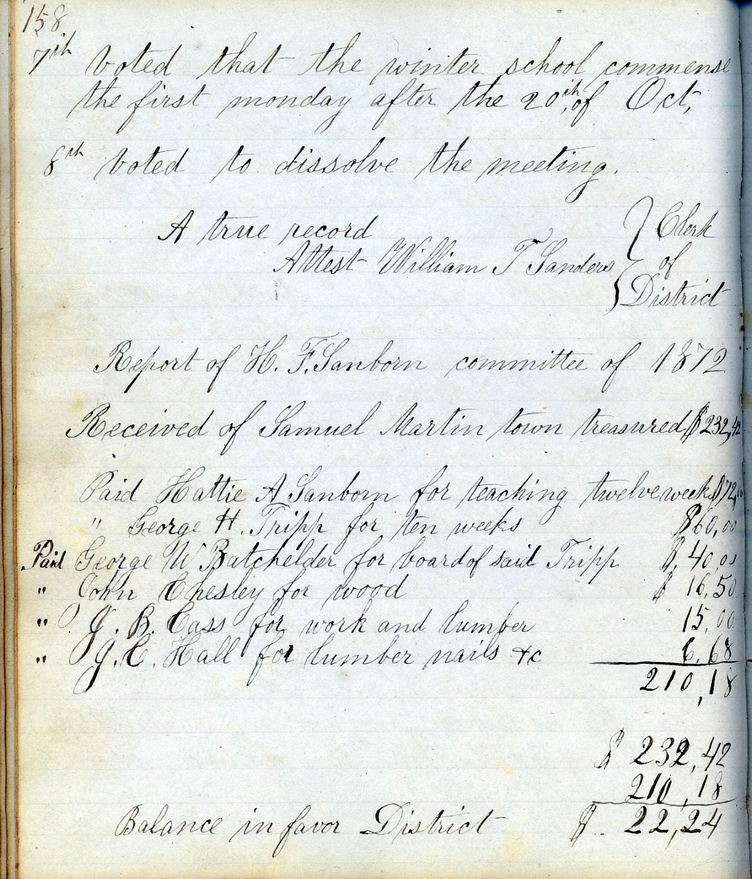 158
7th Voted that the winter school commense
the first monday after the 20th, of Oct,
8th Voted to dissolve the meeting.
A true record } Clerk
Attest William T Sanders } of
District
Report of H. F. Sanborn committee of 1872
Received of Samuel Martin town treasured $232,42
Paid Hattie A Sanborn for teaching twelve weeks $72,00
" George H. Tripp for ten weeks $60,00
Paid George W Batchelder for board of said Tripp $, 40,00
" John Chesley for wood $ 16,50
" J. B. Cass for work and lumber 15,00
" J. C. Hall for lumber nails &c 6,68
210,18
$ 232,42
210,18
Balance in favor District $. 22,24